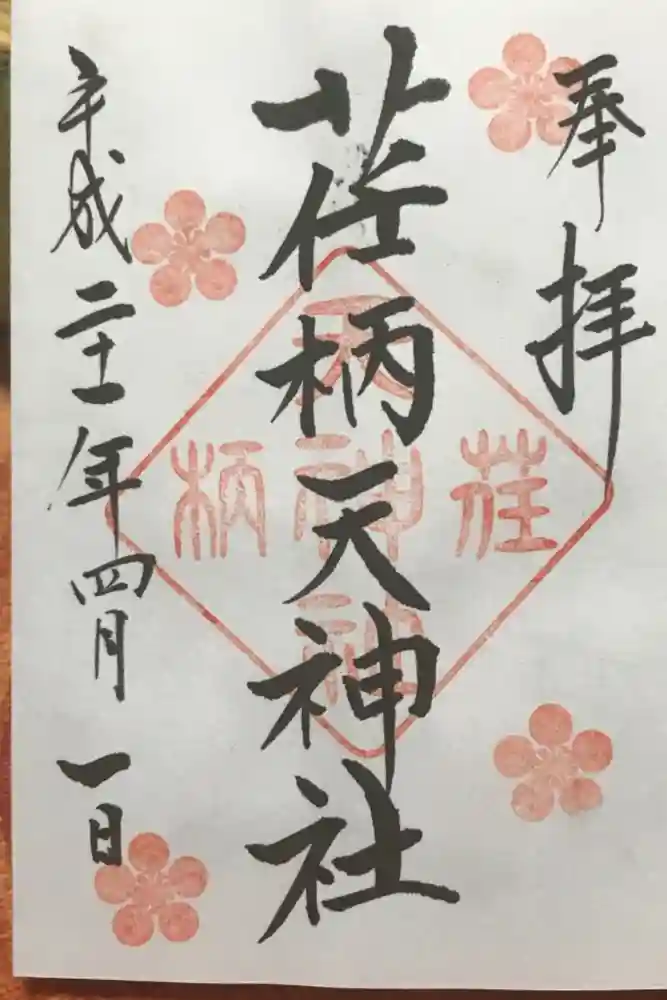 奉拝
荏柄天神社
平成二十一年四月一日
天
荏
神
柄